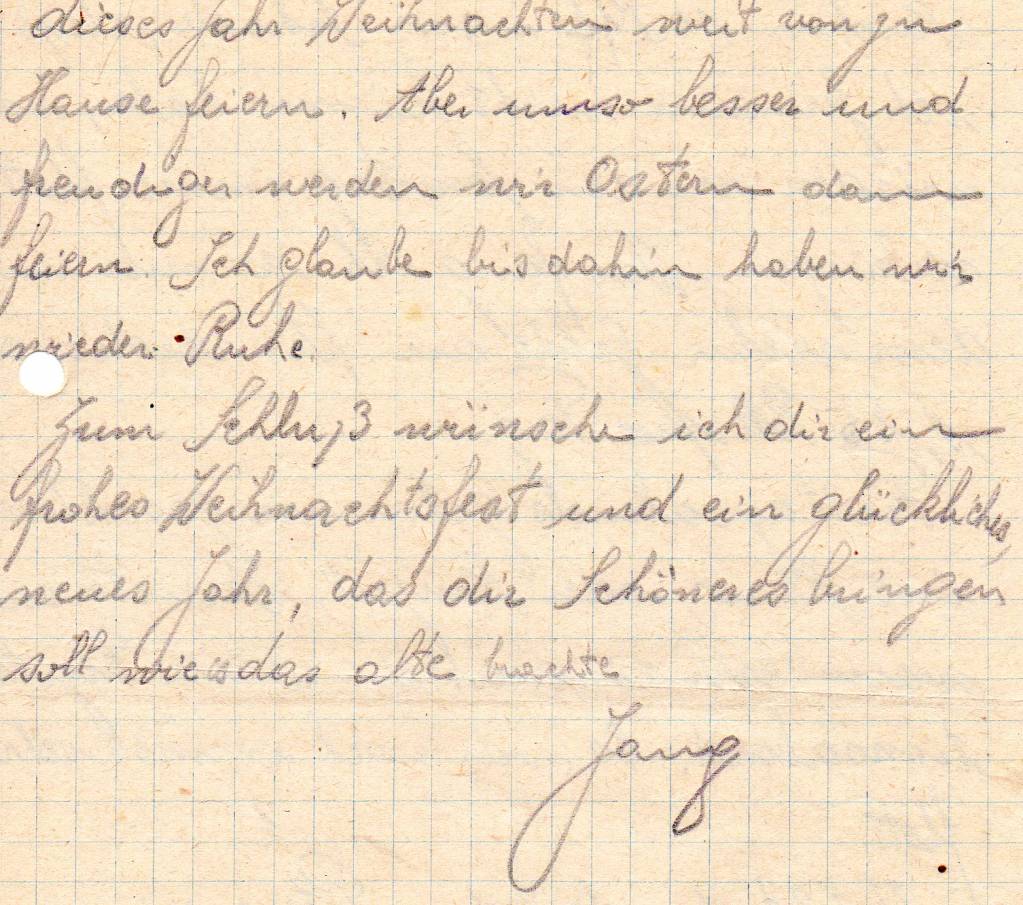 dieses Jahr Weihnachten weit von zu
Hause feiern. Aber umso besser und
freudiger werden wir Ostern dann
feiern. Ich glaube bis dahin haben wir
wieder Ruhe.
Zum Schluß wünsche ich dir ein
frohes Weihnachtsfest und ein glückliches
neues Jahr, das dir Schöneres bringen
soll wie das alte brachte